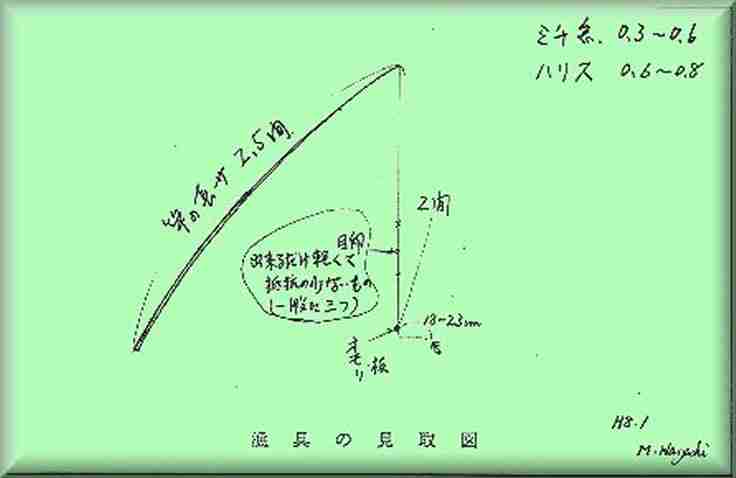 ミチ糸. 0.3~0.6
ハリス 0.6~0.8
竿の長サ 2.5間
2間
目印
出来るだけ軽くて
抵抗の少ないもの
(一般に三つ)
18~23cm
オモリ・板
漁具の見取図
H8.1
M.Hayashi